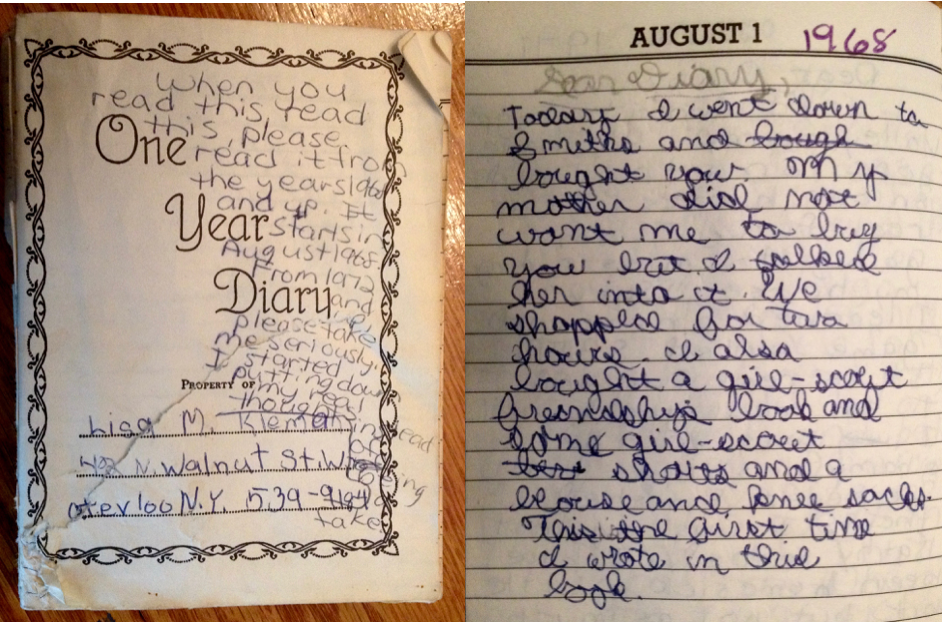 When you
read this read
this, please
One read it fro
the years 1968
and up. It
Year starts in
August 1968
From 1972
Diary and
please take
me seriously.
I started
PROPERTY OF putting down
my real
thoughts
Lisa M.
N. Walnut St. W
aterloo N.Y. 539-
AUGUST 1 1968
Dear Diary,
Today I went down to
Smiths and bough
bought you. My
mother did not
want me to buy
you but I talked
her into it. We
shopped for two
hours. I also
bought a girl-scout
friendship book and
some girl-scout
shorts and a
blouse and knee socks.
This the first time
I wrote in this
book.